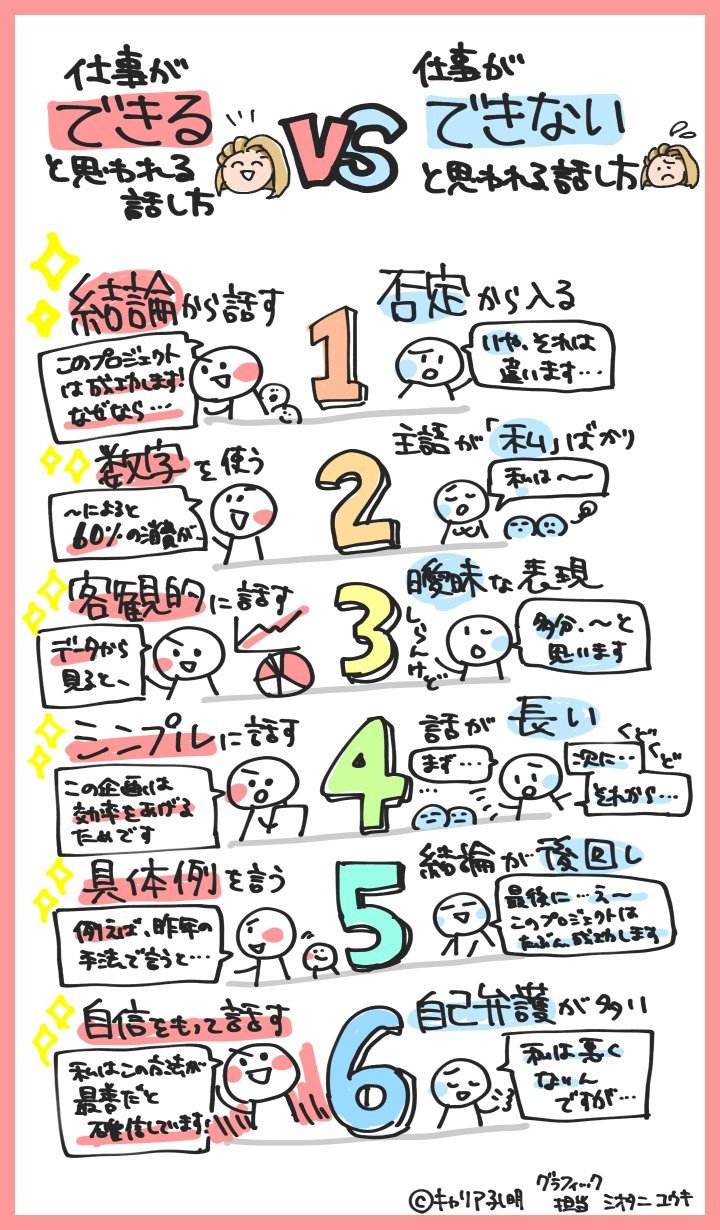 仕事が
できる
と思われる
話し方
VS
仕事が
できない
と思われる話し方
結論から話す
このプロジェクト
は成功します!
なぜなら…
1
否定から入る
いや、それは
違います…
数字を使う
〜によると
60%の消費が、
2
主語が「私」ばかり
私は〜
客観的に話す
データから
見ると、
3
曖昧な表現
しらんけど
多分、〜と
思います
シンプルに話す
この企画は
効率をあげる
ためです
4
話が長い
まず…
…
次に…
くどくど
それから…
具体例を言う
例えば、昨年の
手法で言うと…
5
結論が後回し
最後に…え〜
このプロジェクトは
たぶん成功します
自信をもって話す
私はこの方法が
最善だと
確信しています!
6
自己弁護が多い
私は悪く
ないん
ですが…
©キャリア孔明
グラフィック
担当 シオタニ ユウキ